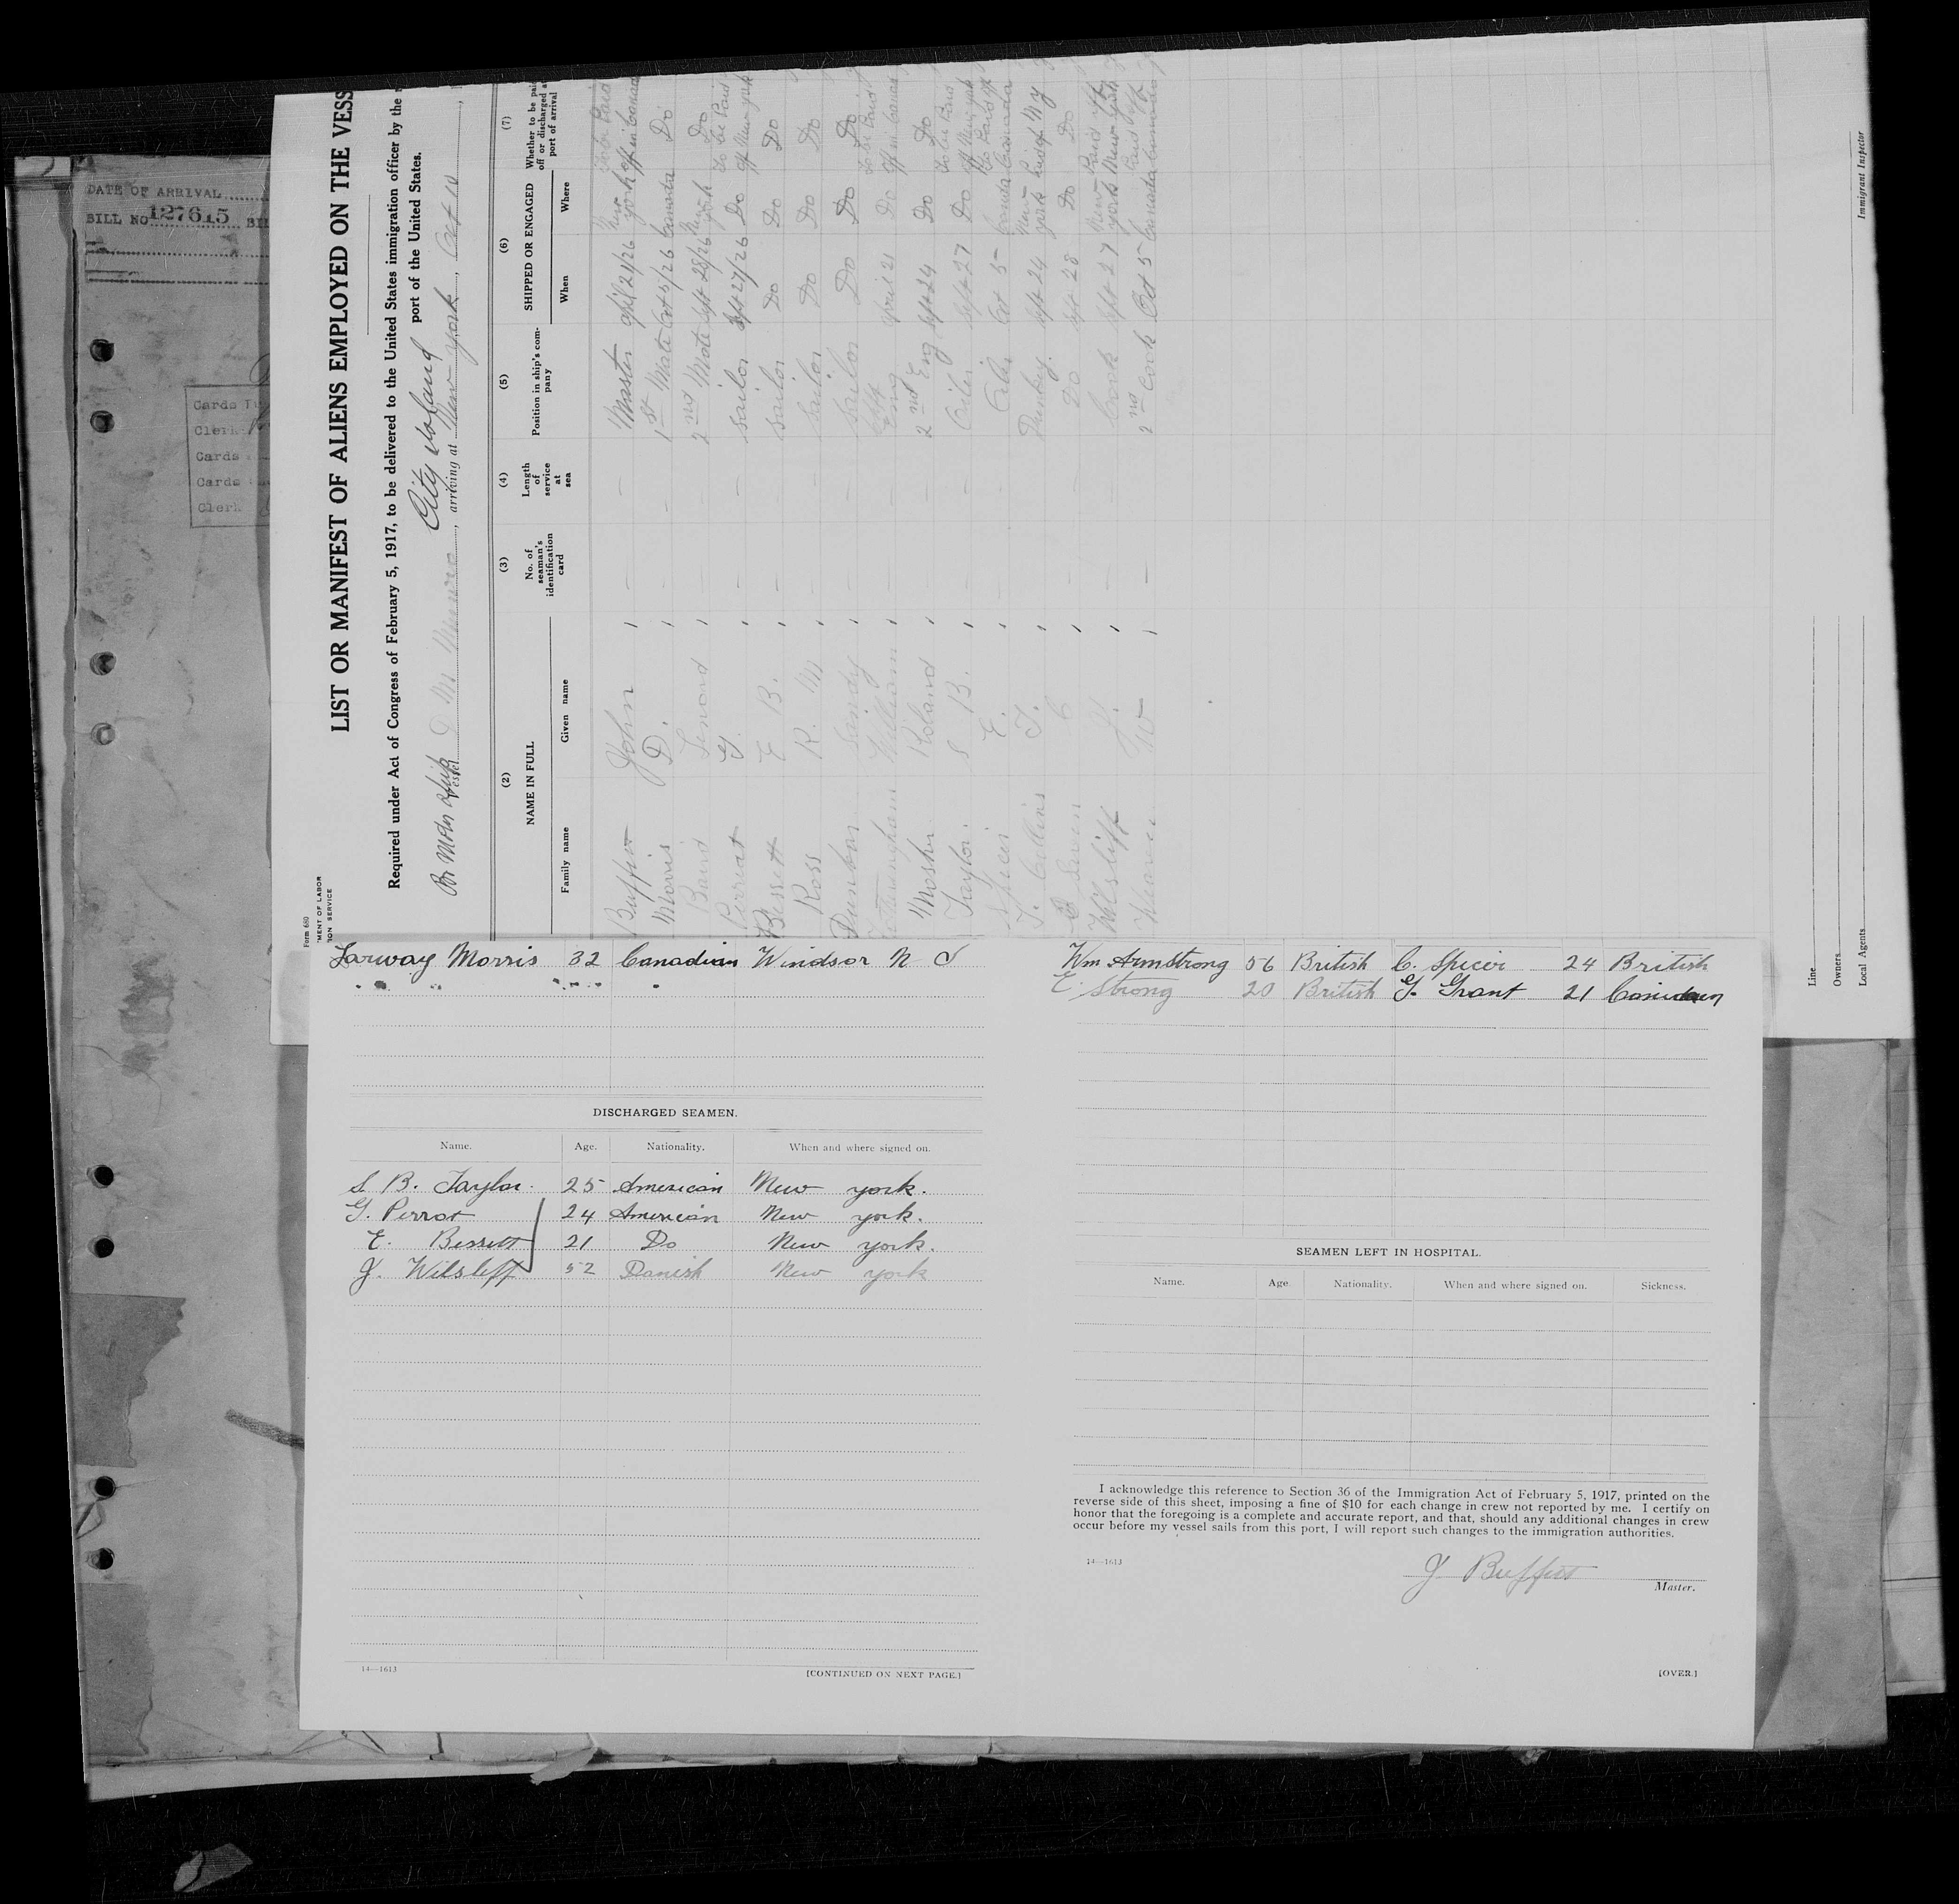 DATE OF ARRIVAL
BILL NO 127615
Cards
Clerk
Cards
Cards
Clerk
Form 680
MENT OF LABOR
ION SERVICE
LIST OR MANIFEST OF ALIENS EMPLOYED ON THE VESS
Required under Act of Congress of February 5, 1917, to be delivered to the United States immigration officer by the
port of the United States.
arriving at New York, Oct 10
(2) (3) (4) (5) (6) (7)
NAME IN FULL
Family name Given name
No. of seaman's identification card
Length of service at sea
Position in ship's company
SHIPPED OR ENGAGED
When Where
Whether to be paid off or discharged at port of arrival
John Master April 21/26 New York
Morris D. 1st Mate Oct 5/26 Canada Do
Baird Lenard 2nd Mate Sept 28/26 New York Do
Perrat G. Sailor Sept 27/26 Do
Bessett E B. Sailor Do Do Do
Ross R. M Sailor Do Do Do
Sailor Do Do Do
William April 21 Do
Mosher Roland 2nd Eng Sept 24 Do Do
Taylor. S B. Oiler Sept 27 Do
Spicer E. Oiler Oct 5 Canada
T. Collins T. Sept 24 New York
Do Sept 28 Do Do
Wilsliff J. Cook Sept 27 New York
W 2nd Cook Oct 5 Canada
Immigrant Inspector
Line
Owners
Local Agents
Morris 32 Canadian Windsor N S
DISCHARGED SEAMEN.
Name. Age. Nationality. When and where signed on.
S. B. Taylor. 25 American New York.
G. Perrot 24 American New York.
E. Bessett 21 Do New York.
J. Wilsleff 52 Danish New York
14—1613
[CONTINUED ON NEXT PAGE.]
Wm Armstrong 56 British C. Spicer 24 British
E. Strong 20 British G. Grant 21 Canadian
SEAMEN LEFT IN HOSPITAL.
Name. Age. Nationality. When and where signed on. Sickness.
I acknowledge this reference to Section 36 of the Immigration Act of February 5, 1917, printed on the
reverse side of this sheet, imposing a fine of $10 for each change in crew not reported by me. I certify on
honor that the foregoing is a complete and accurate report, and that, should any additional changes in crew
occur before my vessel sails from this port, I will report such changes to the immigration authorities.
14—1613
J Buffett
Master.
[OVER.]